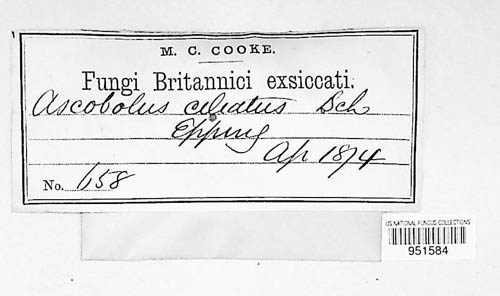 M. C. COOKE.
Fungi Britannici exsiccati.
Ascobolus ciliatus Sch
Epping
Ap 1874
No. 658
US NATIONAL FUNGUS COLLECTIONS
951584